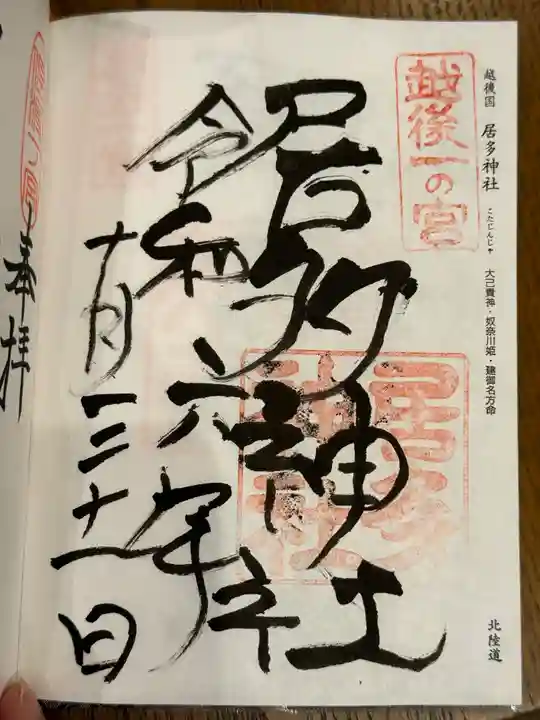 越後国 居多神社 こたじんじゃ 大己貴神・奴奈川姫・建御名方命
北陸道
越後一の宮
居多神社
居多神社
令和六年
十月三十一日
奉拝